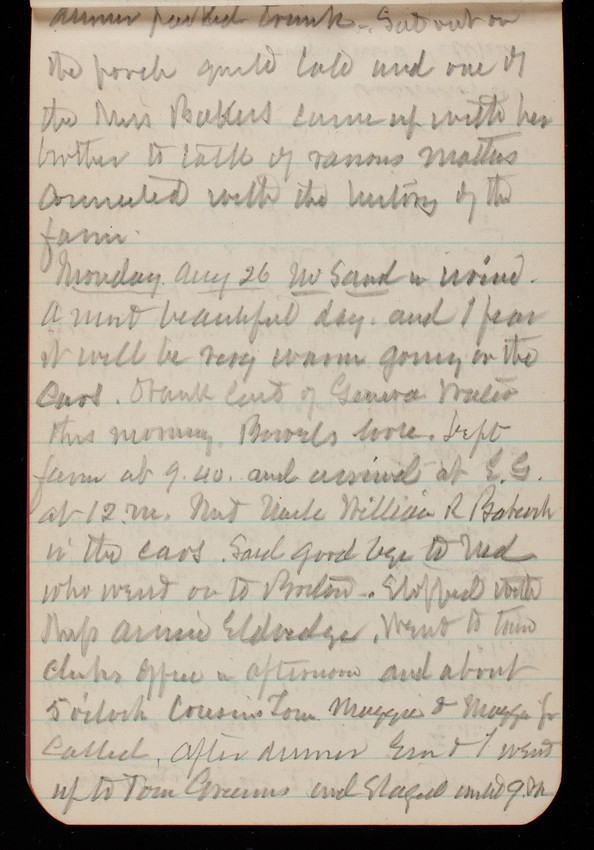 dinner packed trunk. Sat out on
the porch quite late and one of
the Miss Bakers came up with her
brother to talk of various matters
connected with the history of the
farm.
Monday. Aug 26 Wind.
A most beautiful day. and I fear
it will be very warm going in the
Cars. Drank last of Geneva Water
this morning. Bowels loose. Left
farm at 9.40. and arrived at E.G.
at 12. m. Met Uncle William R Babcock
in the cars. Said good bye to Ned
who went on to Boston. Stopped with
Miss Annie Eldredge. Went to town
clerks office in afternoon and about
5 o'clock Cousins Tom Maggie & Maggie Jr
Called. After dinner Em & I went
up to Tom Greenes and staged until 9.